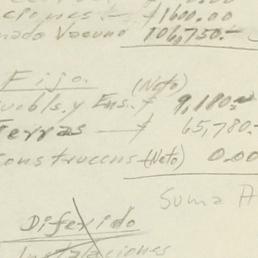 ciones — $1600.00
nado Vacuno 106,750.-
Fijo. (Neto)
uebls. y Ens. $ 9,180.-
Terras — $ 65,780.-
onstruccns (Neto) 0.00
Suma A
Diferido
Instalaciones